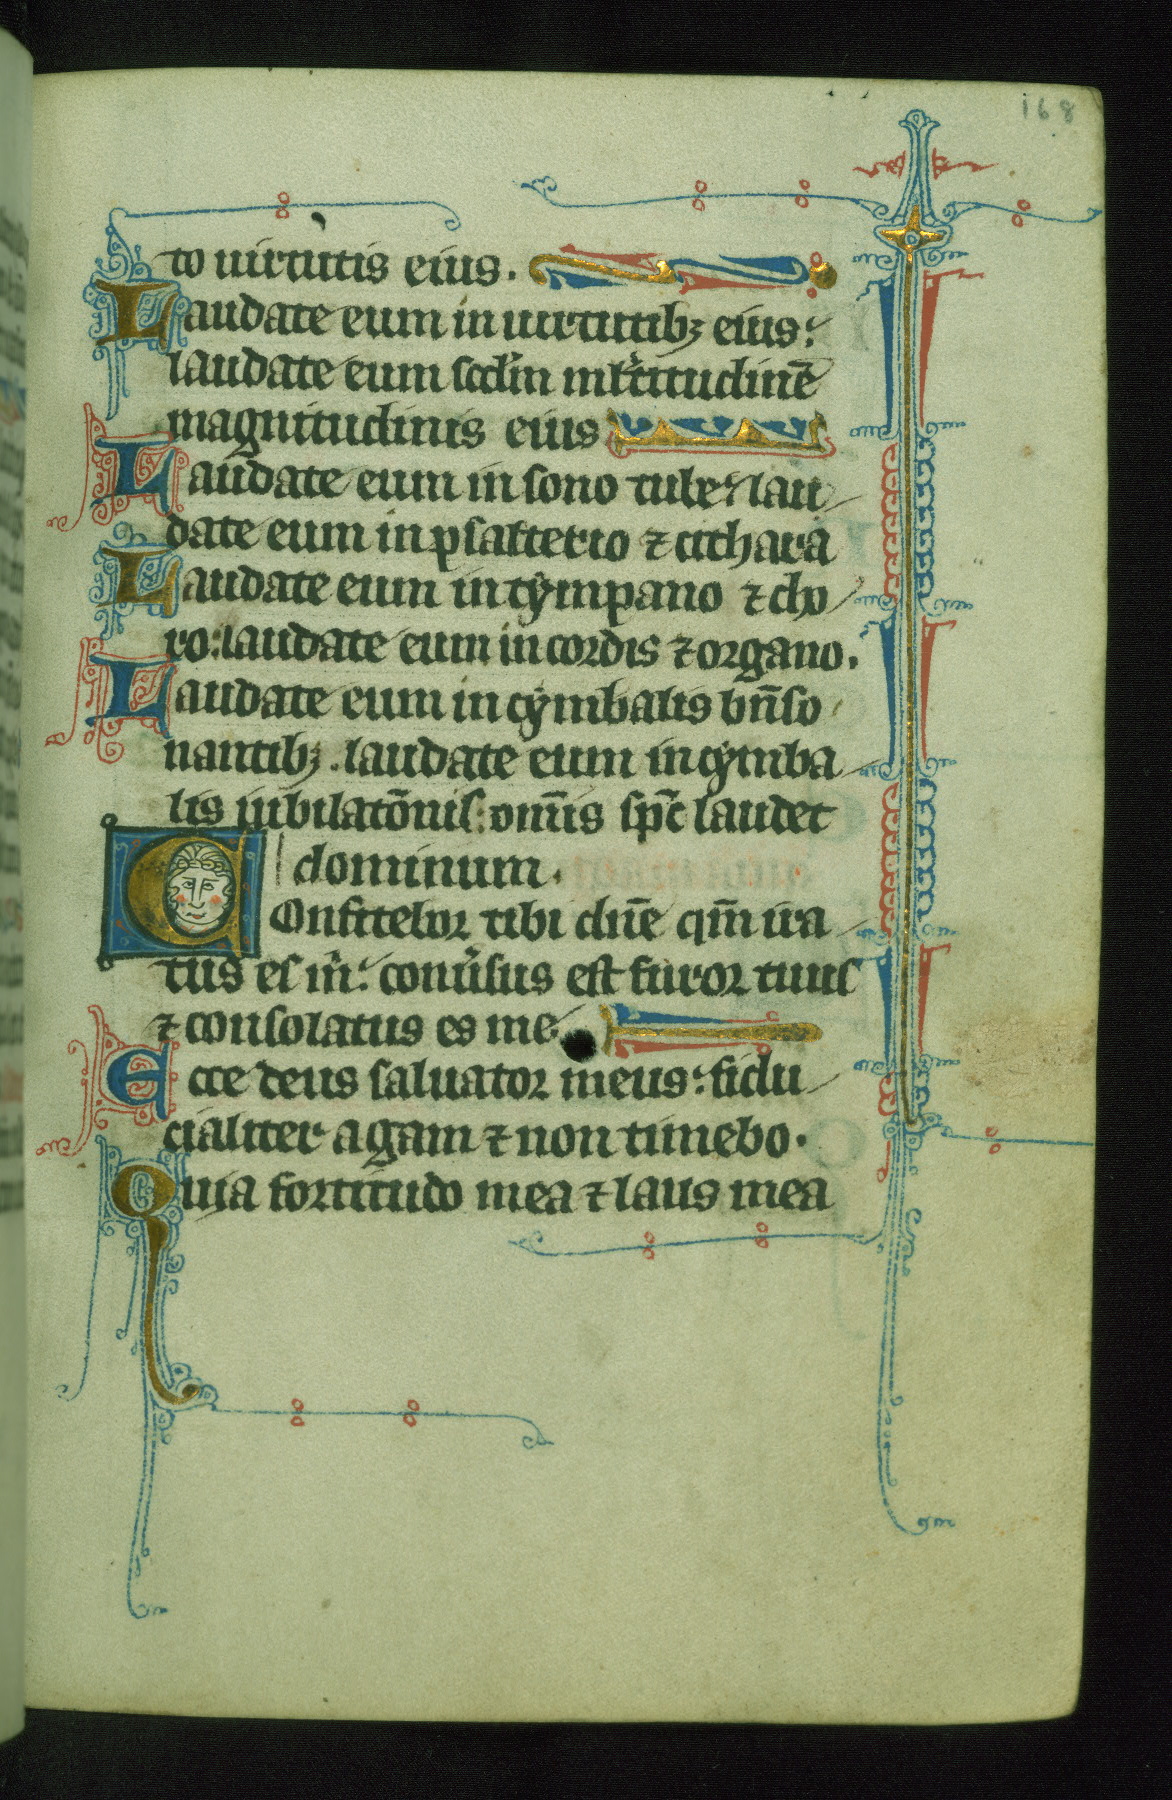 168
to uirtutis eius.
Laudate eum in uirtutibꝫ eius:
laudate eum scd̃m ml̃titudinẽ
magnitudinis eius
Laudate eum in sono tube: lau
date eum in psalterio ⁊ cithara
Laudate eum in tympano ⁊ cho
ro: laudate eum in cordis ⁊ organo.
Laudate eum in cymbalis bñso
nantibꝫ. laudate eum in cymba
lis iubilatõnis: om̃is sp̃c laudet
dominum.
Confitebor tibi dñe qm̃ ira
tus es m̃: conũsus est furor tuus
⁊ consolatus es me
Ecce deus saluator meus: fidu
cialiter agam ⁊ non timebo.
Quia fortitudo mea ⁊ laus mea